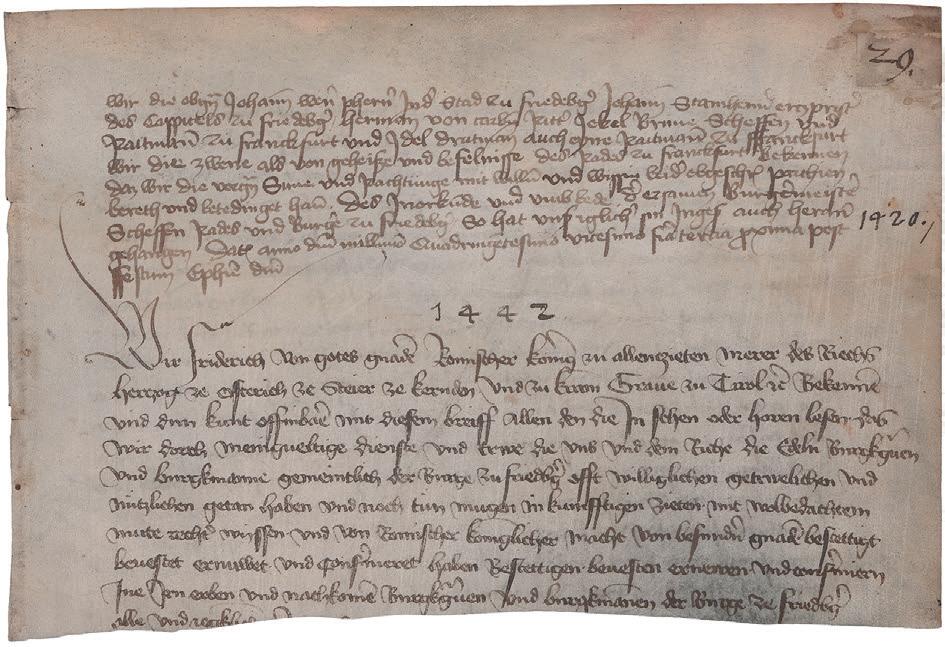 29.
Wir die obgn Johann wern pherr Jnd Stad zu friedebg Johann Stamheim erczprister
des Cappittels zu friedebg herman von carben Ritter Jekel Brune Scheffen und
Raitmann zu franckfurt und Jdel dratman auch eyne Raitmann zu ffranckfurt
Wir die zwene als von geheisze und befelnisse des Rades zu franckfurt Bekennen
daz wir die vorgn Sune und Rachtunge mit willen und wissen beider obgeschr parthien
bereth und betedinget han. Des zu orkunde und umb bede der ersamen Burgermeister
Scheffen Rades und Burger zu friedebg So hat unser iglicher sin Jnges. auch heran
1420.
gehangen Datum anno dni millimo Quadringetesimo vicesimo fia tertia proxima post
ffestum Epiphe dni
1442
Wir friderich von gotes gnaden Romischer konig zu allenczieten merer des Riechs
herczog ze Osterich ze Steier ze kernden und zu krain Graue zu Tirol etc Bekennen
vnd dun kunt offinbar mit diesem brieff Allen den die Jn sehen oder horen lesen das
wir dorch menigueltige dienste vnd truwe die vns vnd dem Riche die Edeln Burgkgrauen
vnd burgkmanne gemeintlich der Burge zu friedbg offt williglichen getrwelichen vnd
nutzlichen getan haben vnd noch tun mugen in kunfftigen zieten mit wolbedachtem
mute rechter wissen vnd von Romischer koniglicher macht von besundern gnaden bestettigt
beuestet ernuwet vnd Confirmeret haben Bestettigen beuesten ernewen vnd confirmern
Jne Jren erben vnd nachkomen Burgkgrauen vnd burgkmannen der Burge ze friedbg
alle vnd